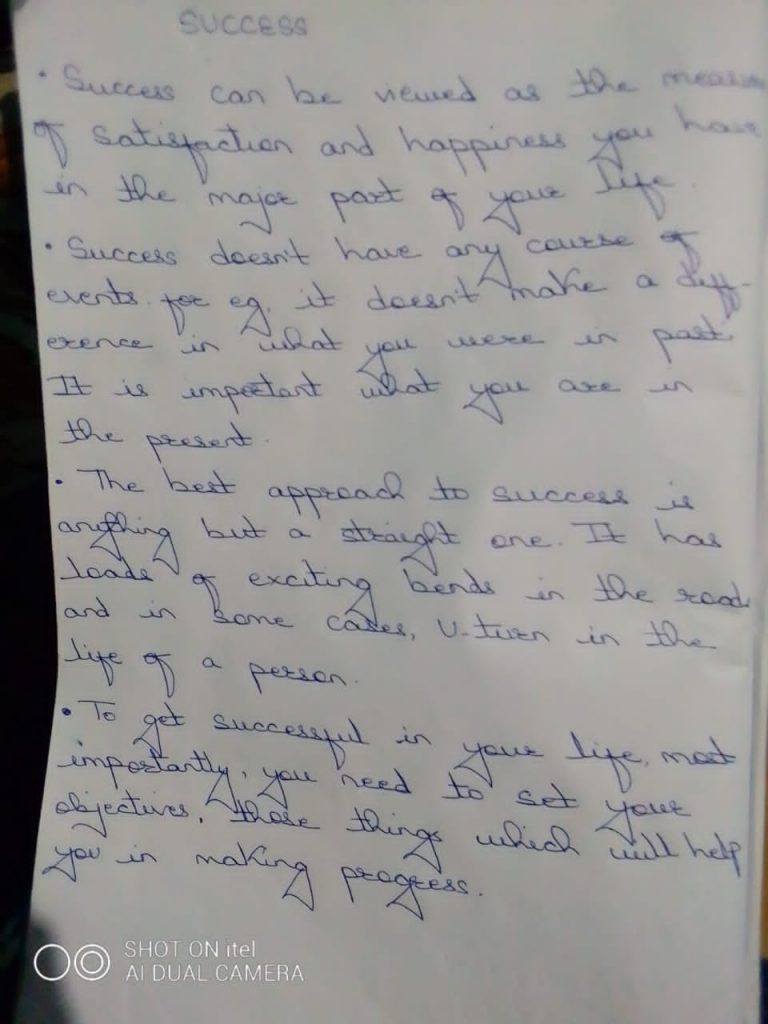 SUCCESS
• Success can be viewed as the measure
of satisfaction and happiness you have
in the major part of your life.
• Success doesn't have any course of
events. for eg. it doesn't make a diff-
erence in what you were in past.
It is important what you are in
the present.
• The best approach to success is
anything but a straight one. It has
loads of exciting bends in the road
and in some cases, U-turn in the
life of a person.
• To get successful in your life, most
importantly, you need to set your
objectives, those things which will help
you in making progress.
SHOT ON itel
AI DUAL CAMERA